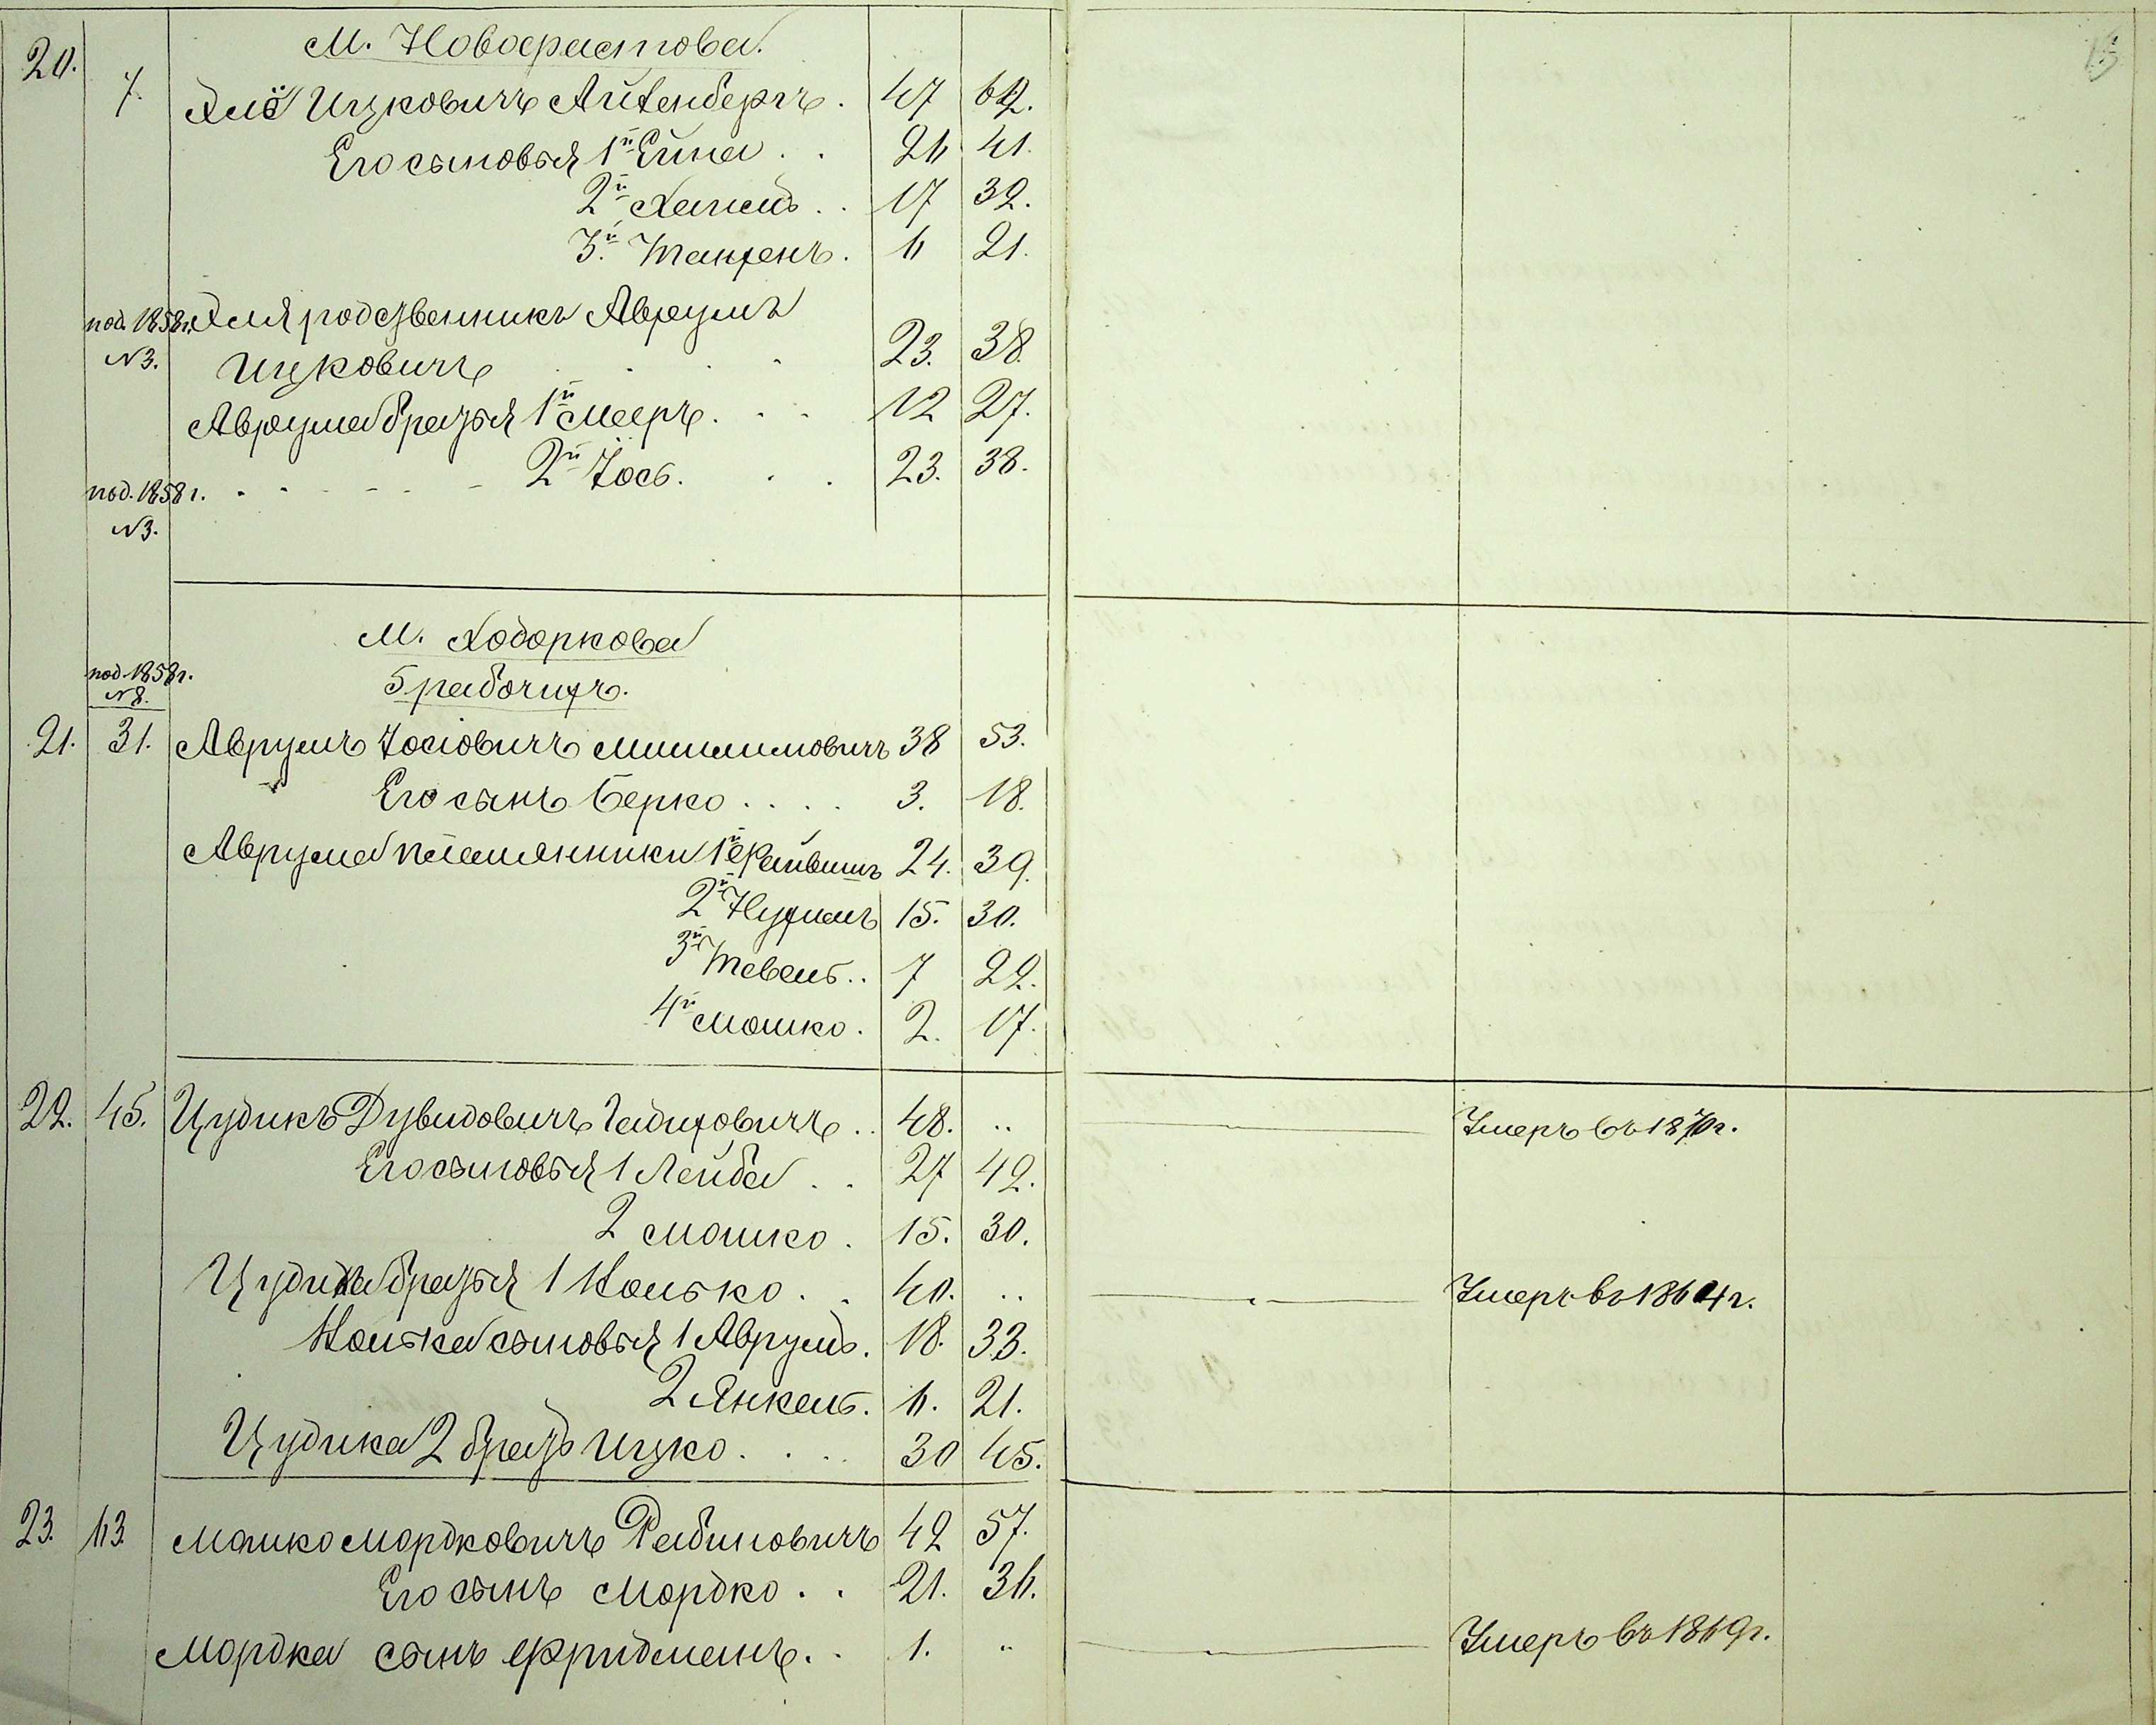 15
М. Новофастова.
20. 7. Хаiѣ Ицковичъ Айзенбергъ. 47 62.
Его сыновья 1й Ейна . . 26 41.
2й Хаимъ . . 17 32.
3й Танхенъ. 6 21.
под. 1858 г. родственникъ Аврумъ
N 3. Ицковичъ . . . 23. 38.
Аврума братья 1й Мееръ . . . 12 27.
под. 1858 г. 2й Іось. . . 23. 38.
N 3.
М. Ходоркова
под. 1858 г.
N 8. 5 рабочихъ.
21. 31. Аврумъ Іосіовичъ 38 53.
Его сынъ Берко . . . . 3. 18.
Аврума племянники 1й Файвишъ 24. 39.
2й Нухимъ 15. 30.
3й Тевель . . 7 22.
4й Мошко. 2. 17.
22. 45. Цудикъ Дувидовичъ . . 48. .. Умеръ въ 1870 г.
Его сыновья 1 Лейба . . 27 42.
2 Мошко . 15. 30.
Цудика братья 1 Іонько . . 40. .. Умеръ въ 1864 г.
Іонька сыновья 1 Аврумъ. 18. 33.
2 Янкель. 6. 21.
Цудика 2 братъ Ицко . . . . 30 45.
23. 63. Мошко Мордковичъ Рабиновичъ 42 57.
Его сынъ Мордко . . 21. 36.
Мордка сынъ Фридманъ . . 1. .. Умеръ въ 1869 г.